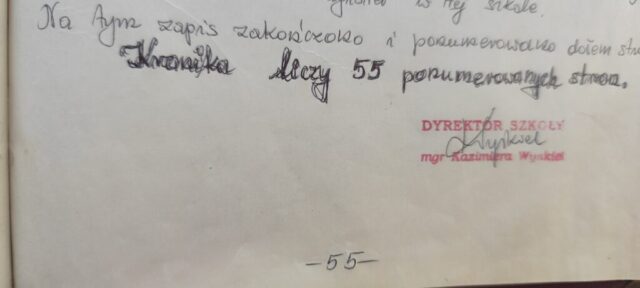 w tej szkole.
Na tym zapis zakończono i ponumerowano dołem str
Kronika liczy 55 ponumerowanych stron.
DYREKTOR SZKOŁY
mgr Kazimiera
-55-